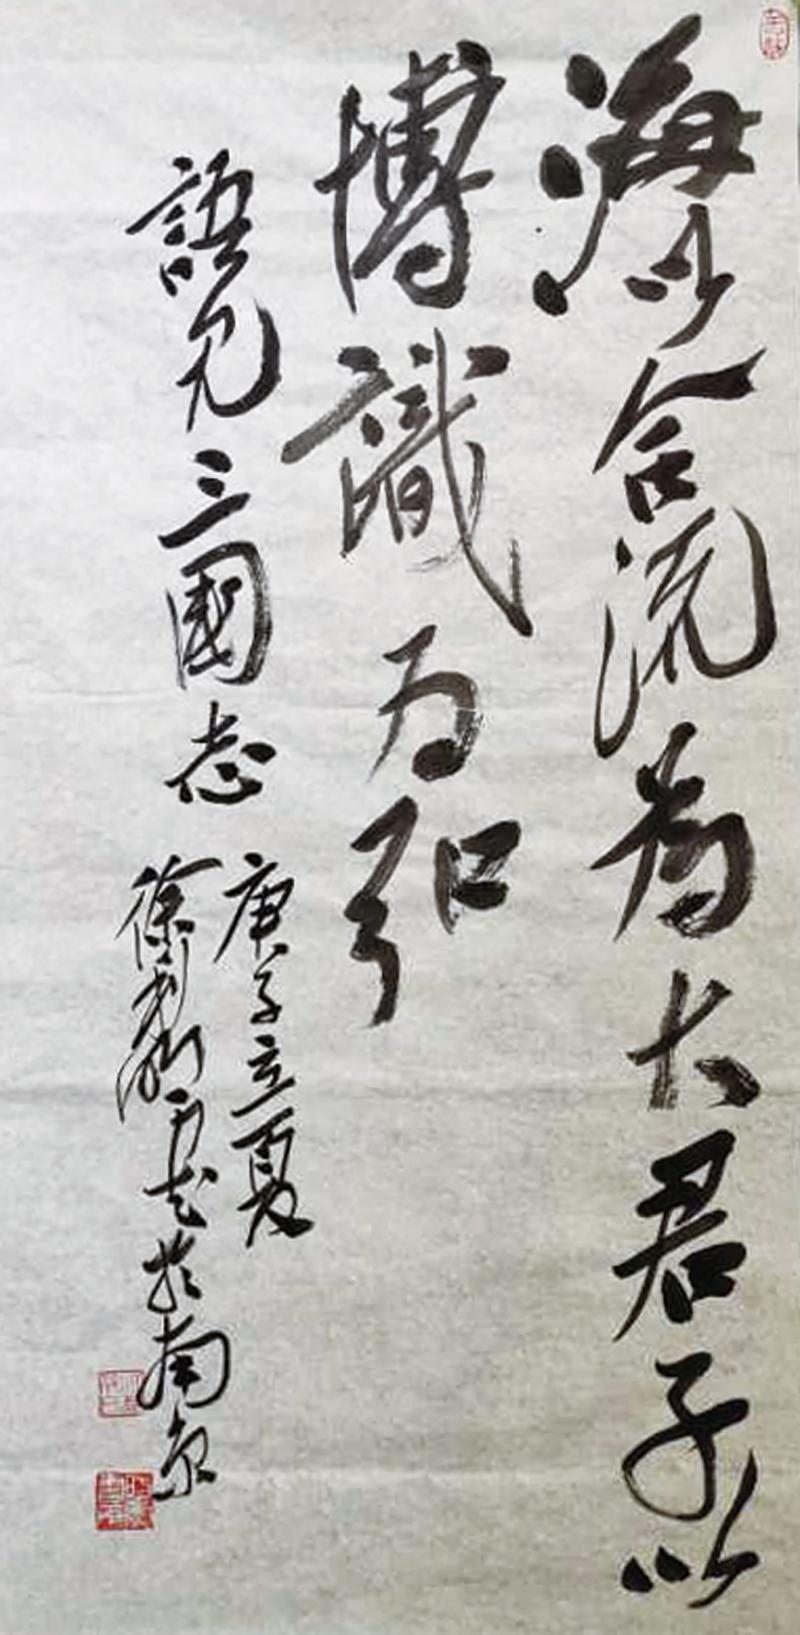 海以合流為大君子以
博識为弘
語見三國志
庚子立夏
徐 於南京